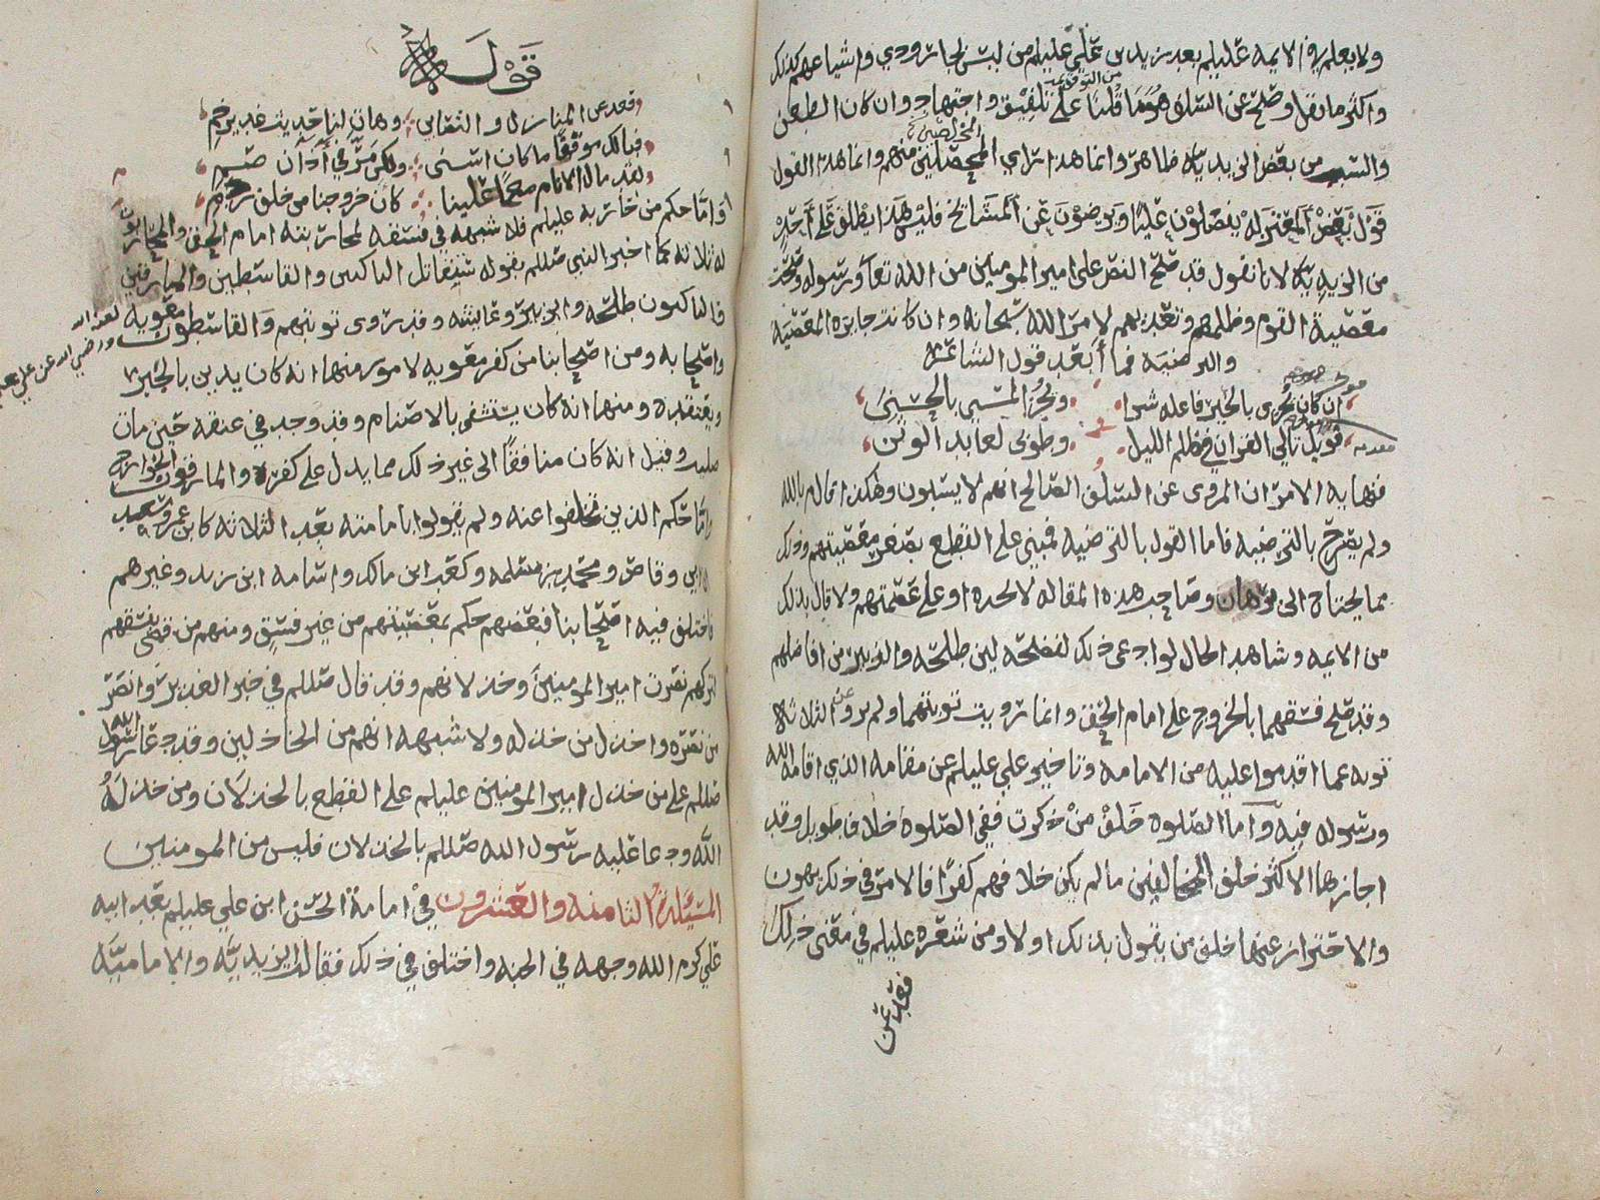 ولا يعلم في الائمه عليلم بعد زيد بن علي عليلم من لبس الجارودي واشياعهم كذلك
واكثر ما نقل وصح عن السلف هو ما قلنا على تلفيق واجتهاد وان كان الطعن
من التوقف
والسب من بعض الزيديه ظاهر وانما هذا راي المحصلين منهم وانما هذا القول
المخلصين
قول بعض المعتزله يفضلون عليا ويرضون عن المشائخ فليس هذا يطلق على احد
من الزيديه لانا نقول قد صح النص على امير المومنين من الله تعا ورسوله وصحت
معصية القوم وظلمهم وتعديهم لامر الله سبحانه وان كانت جايزه المعصيه
والترضيه فما أبعد قول الشاعر
ان كان يجزى بالخير فاعله شرا ويجزا المسي بالحسنى
فويل تالي القران في ظلم الليل وطوبى لعابد الوثن
فنهاية الامر ان المروى عن السلف الصالح انهم لا يسبون وهكذا قال م بالله
ولم يصرح بالترضيه فاما القول بالترضيه فمبني على القطع بصغر معصيتهم وذلك
مما يحتاج الى برهان وصاحب هذه المقاله لا يجده او على عصمتهم ولا قال بذلك
من الائمه وشاهد الحال لو ادعى ذلك لفضحه لان طلحه والزبير من افاضلهم
وقد صح فسقهما بالخروج على امام الحق وانما رويت توبتهما ولم يرو عن الثلاثه
توبه عما اقدموا عليه من الامامه وتاخير علي عليلم عن مقامه الذي اقامه الله
ورسوله فيه وأما الصلوه خلف من ذكرت ففي الصلوه خلاف طويل وقد
اجازها الاكثر خلف المخالفين ما لم يكن خلافهم كفرا فالامر في ذلك يهون
والاحتراز عنها خلف من يقول بذلك اولا ومن شعره عليلم في معنى ذلك
فقعد عن
قوله
فقعد عن المنازل والتغابي وهات لنا حديث غدير خم
فيالك موقفا ما كان اسنى ولكن مر في آذان صم
لقد مال الانام معا علينا كان خروجنا من خلف ردم
وأما حكم من حاربه عليلم فلا شبهه في فسقه لمحاربته امام الحق والمحاربون
له ثلاثه كما اخبر النبي صللم بقوله ستقاتل الناكثين والقاسطين والمارقين
فالناكثون طلحه وابن الزبير وعائشه وقد روى توبتهم والقاسطون معويه لعنه الله
واصحابه ومن اصحابنا من كفر معويه لامور منها انه كان يدين بالجبر
ويعتقده ومنها انه كان يستشفى بالاصنام وقد وجد في عنقه حين مات
صليب وقيل انه كان منافقا الى غير ذلك مما يدل على كفره والمارقون الخوارج
وأما حكم الذين تخلفوا عنه ولم يقولوا بامامته بعد الثلاثه كابن عمر وسعد
ابن وقاص ومحمد بن مسلمه وكعب ابن مالك واسامه ابن زيد وغيرهم
فاختلف فيه اصحابنا فبعضهم حكم بمعصيتهم من غير فسق ومنهم من قضى بفسقهم
لتركهم نصرت امير المومنين وخذلانهم وقد قال صللم في خبر الغدير وانصر
من نصره واخذل من خذله ولا شبهه انهم من الخاذلين وقد دعا رسول الله
صللم على من خذل امير المومنين عليلم على القطع بالخذلان ومن خذله
الله ودعا عليه رسول الله صللم بالخذلان فليس من المومنين
المسئلة الثامنه والعشرون في امامة الحسن ابن علي عليلم بعد ابيه
علي كرم الله وجهه في الجنه واختلف في ذلك فقالت الزيديه والاماميه